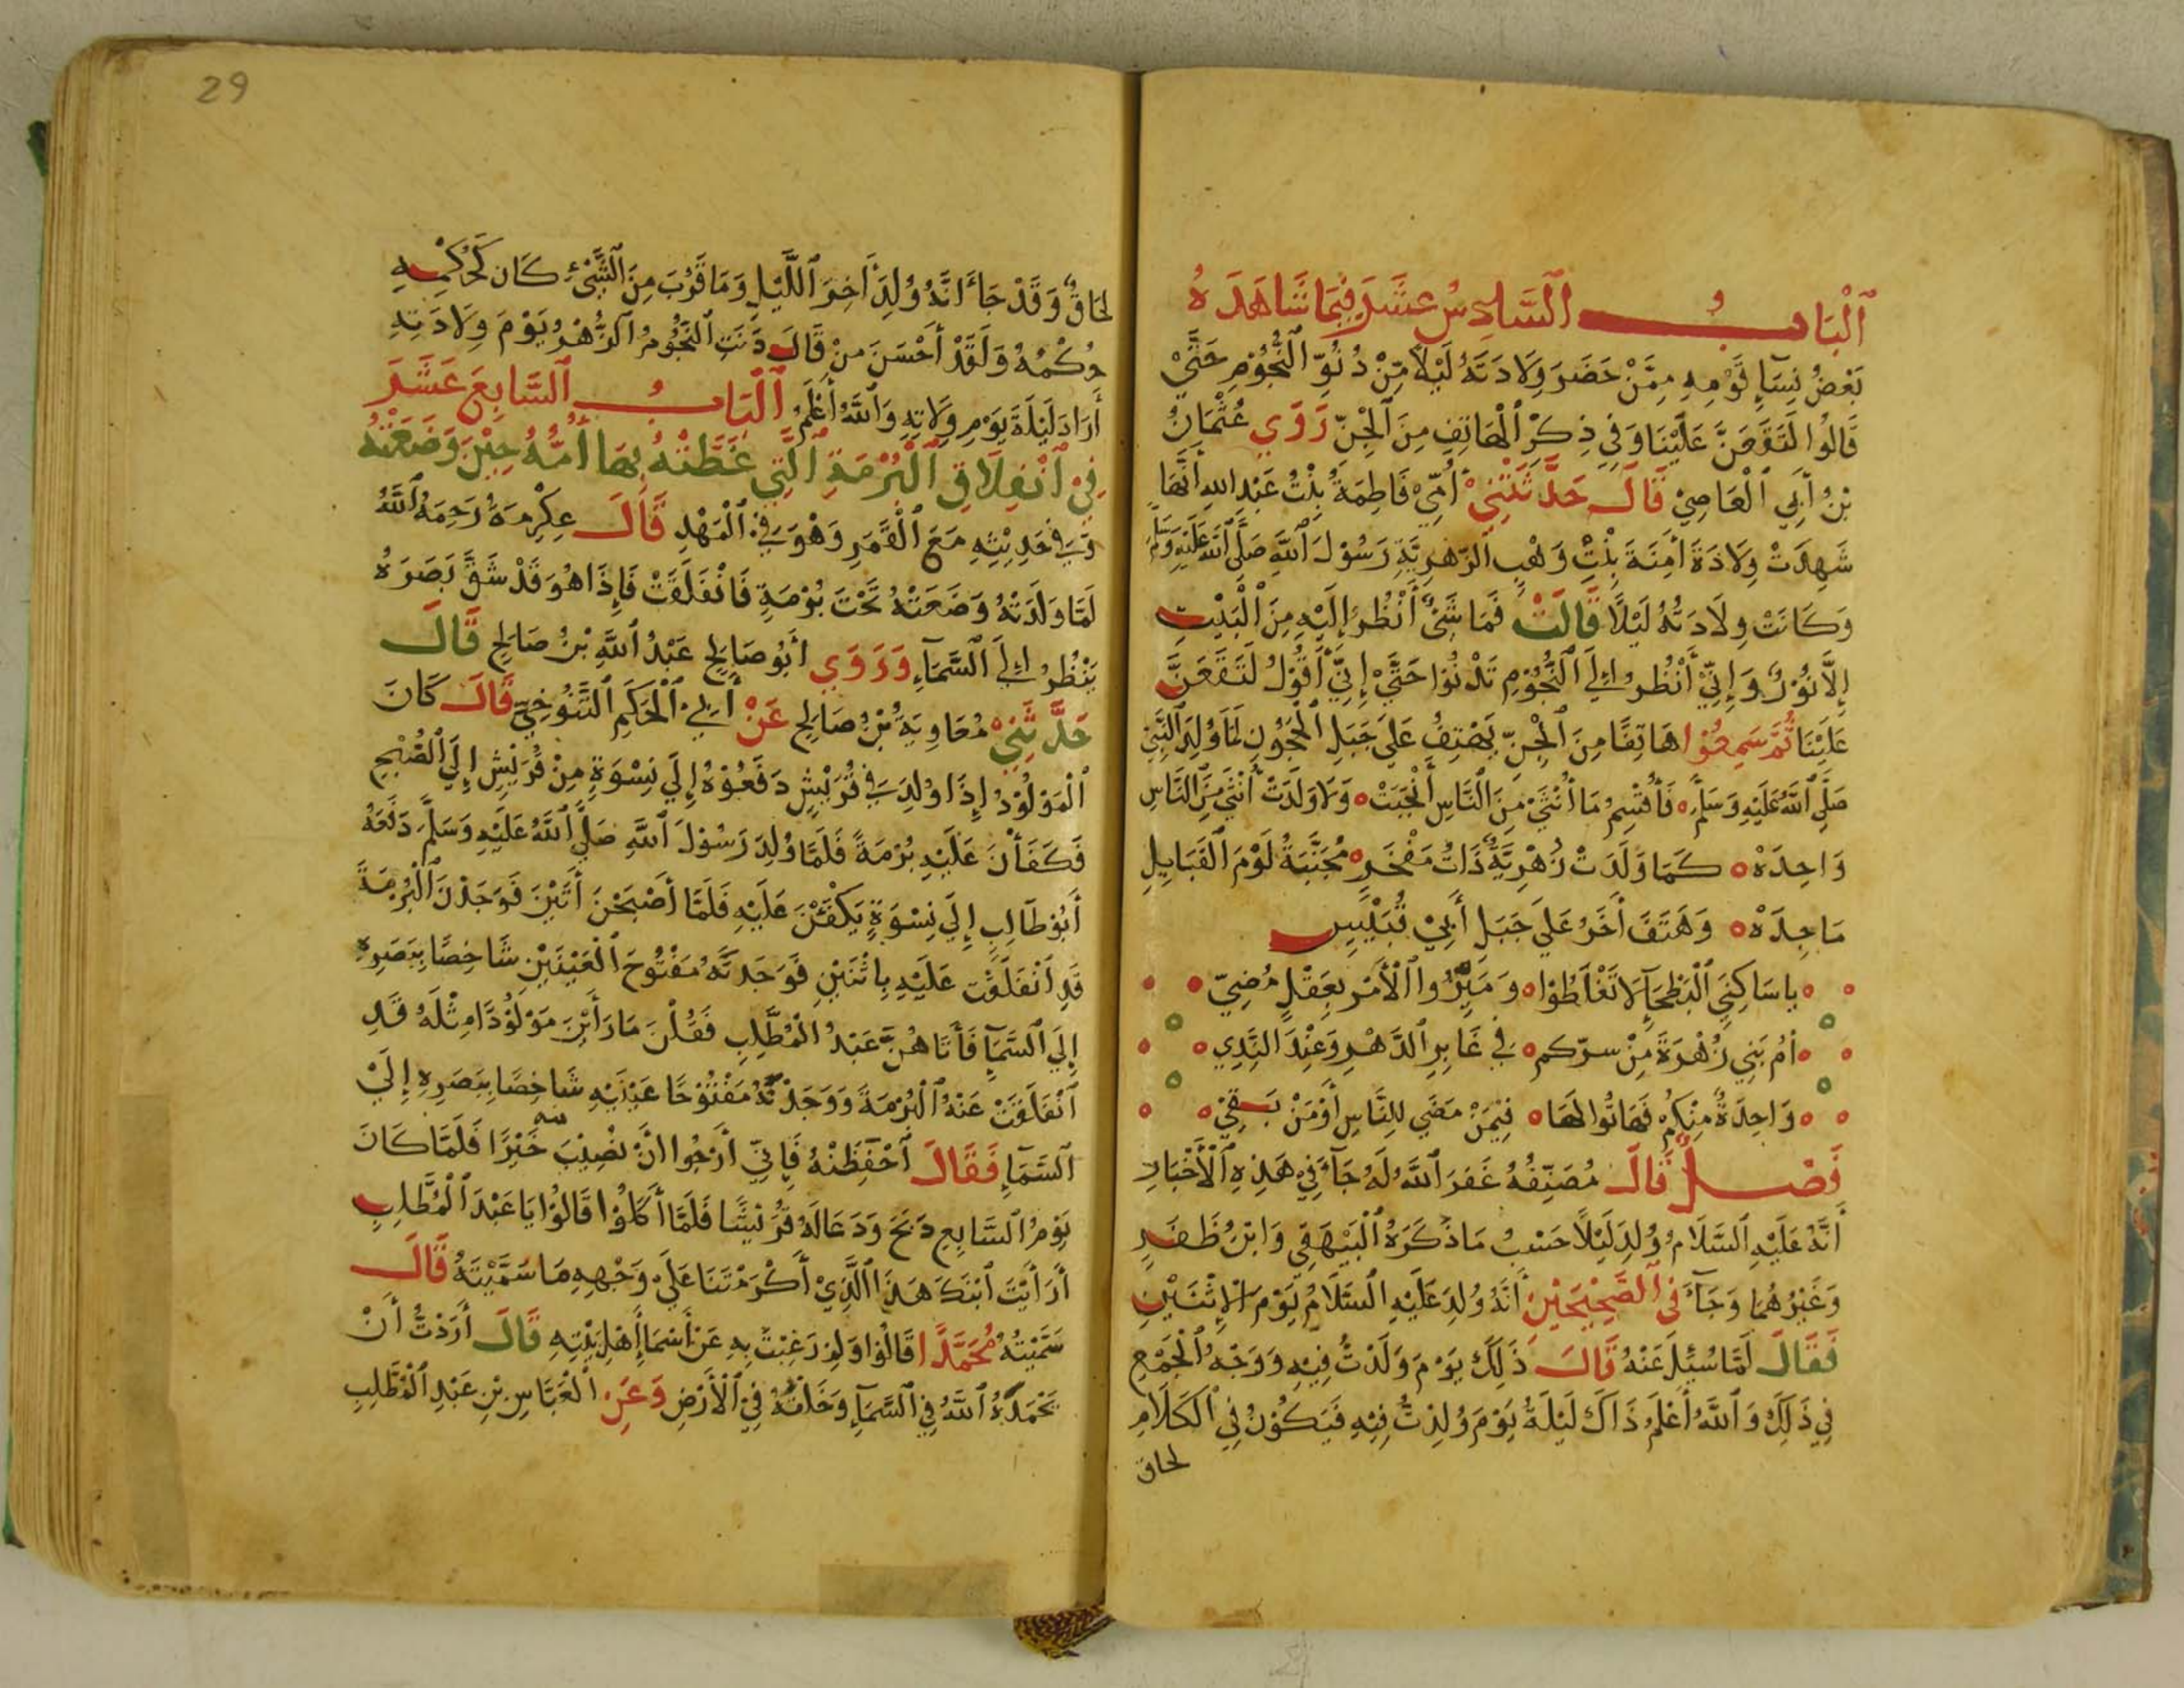 اَلْبَابُ السَّادِسُ عَشَرَ فِيمَا شَاهَدَهُ
بَعْضُ نِسَاءِ قَوْمِهِ مِمَّنْ حَضَرَ وِلَادَتَهُ لَيْلًا مِنْ دُنُوِّ النُّجُوْمِ حَتَّيْ
قَالُوا لَتَقَعَنَّ عَلَيْنَا وَفِي ذِكْرِ الْهَاتِفِ مِنَ الْجِنِّ رَوَي عُثْمَانُ
بْنُ أَبِي الْعَاصِيْ قَالَ حَدَّثَتْنِيْ أُمِّيْ فَاطِمَةُ بِنْتُ عَبْدِ اللهِ أَنَّهَا
شَهِدَتْ وِلَادَةَ أَمِنَةَ بِنْتِ وَهْبِ الزّهرِيَّةِ رَسُوْلَ اللهِ صَلَّي اللهُ عَلَيْهِ وَسَلَّمَ
وَكَانَتْ وِلَادَتُهُ لَيْلًا قَالَتْ فَمَا شَيْءٌ أَنْظُرُ إِلَيْهِ مِنَ الْبَيْتِ
إِلَّا نُوْرٌ وَإِنِّيْ أَنْظُرُ إِلَي النُّجُوْمِ تَدْنُوْا حَتَّيْ إِنِّيْ أَقُوْلُ لَتَقَعَنَّ
عَلَيْنَا ثُمَّ سَمِعُوْا هَاتِفًا مِنَ الْجِنِّ يَهْتِفُ عَلَي جَبَلِ الْحَجُوْنِ لَمَّا وُلِدَ النَّبِيْ
صَلَّي اللهُ عَلَيْهِ وَسَلَّمَ ٥ فَأُقْسِمُ مَا أُنْثَيْ مِنَ النَّاسِ أَنْجَبَتْ ٥ وَلَا وَلَدَتْ أُنْثَي مِنَ النَّاسِ
وَاحِدَهْ ٥ كَمَا وَلَدَتْ زُهْرِيَّةٌ ذَاتُ مَفْخَرٍ ٥ مُجَنَّبَةُ لَوْمَ الْقَبَايِلِ
مَاجِدَهْ ٥ وَهَتَفَ أَخَرُ عَلَي جَبَلِ أَبِيْ قُبَيْسِ
٥ ياسَاكِنِي الْبَطْحَاءِ لَا تَغْلَطُوْا ٥ وَمَيِّزُوا الْأَمْرَ بِعَقْلٍ مُضِيّ ٥
٥ اِنَّ بَنِي زُهْرَةَ مِنْ سرّكم ٥ فِي غَابِرِ الدَّهْرِ وَعِنْدَ البَّدِي ٥
٥ وَاحِدَةٌ مِنْكُمْ فَهَاتُوا لَهَا ٥ فِيْمَنْ مَضَي لِلنَّاسِ أَوْ مَنْ بَقِيْ ٥
فَصْلٌ قَالَ مُصَنِّفُهُ غَفَرَ اللهُ لَهُ جَآءَ فِيْ هَذِهِ الْأَخْبَارِ
أَنَّهُ عَلَيْهِ السَّلَامُ وُلِدَ لَيْلًا حَسْبُ مَا ذَكَرَهُ الْبَيْهَقِي وَابْنُ ظَفَرٍ
وَغَيْرُهُمَا وَجَآءَ فِي الصَّحِيْحَيْنِ أَنَّهُ وُلِدَ عَلَيْهِ السَّلَامُ يَوْمَ الْإِثْنَيْنِ
فَقَالَ لَمَّا سُئِلَ عَنْهُ قَالَ ذَلِكَ يَوْمَ وُلِدْتُ فِيْهِ وَوَجْهُ الْجَمْعِ
فِي ذَلِكَ وَاللهُ أَعْلَمُ ذَاكَ لَيْلَةُ يَوْمَ وُلِدْتُ فِيْهِ فَيَكُوْنُ فِي الْكَلَامِ
لحاق
29
لحَاقٌ وَقَدْ جَاءَ اَنَّهُ وُلِدَ أَخِرَ اللَّيْلِ وَمَا قَرُبَ مِنَ الشَّيْءِ كَانَ كَحُكْمِهِ
حُكْمُهُ وَلَقَدْ أَحْسَنَ مَنْ قَالَ دَنَتِ النُّجُوْمُ الزُّهْرُ يَوْمَ وِلَادَتِهِ
أَرَادَ لَيْلَةَ يَوْمِ وِلَاتِهِ وَاللهُ أَعْلَمُ اَلْبَابُ السَّابِعَ عَشَرَ
فِيْ انْفِلَاقِ الْبُرْمَةِ الَّتِي غَطَّتْهُ بِهَا أُمُّهُ حِيْنَ وَضَعَتْهُ
وَفِي حَدِيْثِهِ مَعَ الْقَمَرِ وَهْوَ فِي الْمَهْدِ قَالَ عِكْرِمَةُ رَحِمَهُ اللهُ
لَمَّا وَلَدَتْهُ وَضَعَتْهُ تَحْتَ بُرْمَةٍ فَانْفَلَقَتْ فَإِذَا هُوَ قَدْ شَقَّ بَصَرَهُ
يَنْظُرُ اِلَي السَّمَآءِ وَرَوَي أَبُوْ صَالِحٍ عَبْدُ اللهِ بْنُ صَالِحٍ قَالَ
حَدَّثَنِيْ مُعَاوِيَةُ بْنُ صَالِحٍ عَنْ أَبِي الْحَكَمِ التَّنُوْخِيّ قَالَ كَانَ
الْمَوْلُوْدُ إِذَا وُلِدَ فِي قُرَيْشٍ دَفَعُوْهُ إِلَي نِسْوَةٍ مِنْ قُرَيْشٍ إِلَي الصُّبْحِ
فَكَفَأْنَ عَلَيْهِ بُرْمَةً فَلَمَّا وُلِدَ رَسُوْلَ اللهِ صَلَّي اللهُ عَلَيْهِ وَسَلَّمَ دَفَعَهُ
أَبُوْ طَالِبٍ إِلَي نِسْوَةٍ يَكْفَئْنَ عَلَيْهِ فَلَمَّا أَصْبَحْنَ أَتَيْنَ فَوَجَدْنَ الْبُرْمَةَ
قَدِ انْفَلَقَتْ عَلَيْهِ بِاثْنَيْنِ فَوَجَدْنَهُ مَفْتُوْحَ الْعَيْنَيْنِ شَاخِصًا بِبَصَرِهِ
إِلَي السَّمَآءِ فَأَتَاهُنَّ عَبْدُ الْمُطَّلِبِ فَقُلْنَ مَا رَأَيْنَ مَوْلُوْدًا مِثْلَهُ قَدِ
انْفَلَقَتْ عَنْهُ الْبُرْمَةُ وَوَجَدْنَهُ مَفْتُوْحًا عَيْنَيْهِ شَاخِصًا بِبَصَرِهِ إِلَيْ
السَّمَآءِ فَقَالَ احْفَظْنَهُ فَإِنِّي أَرْجُوا انَّ يُصِيْبَ خَيْرًا فَلَمَّا كَانَ
يَوْمُ السَّابِعِ ذَبَحَ وَدَعَا لَهُ قُرَيْشًا فَلَمَّا أَكَلُوْا قَالُوْا يَا عَبْدَ الْمُطَّلِبِ
أَرَأَيْتَ ابْنَكَ هَذَا الَّذِيْ أَكْرَمْتَنَا عَلَي وَجْهِهِ مَا سَمَّيْتَهُ قَالَ
سَمَّيْتُهُ مُحَمَّدًا قَالُوْا وَلِمَ رَغِبْتَ بِهِ عَنْ أَسْمَاءِ أَهْلِ بَيْتِهِ قَالَ أَرَدْتُ أَنْ
يَحْمَدَهُ اللهُ فِي السَّمَآءِ وَخَلْقُهُ فِيْ الْأَرْضِ وَعَنِ الْعَبَّاسِ بْنِ عَبْدِ الْمُطَّلِبِ